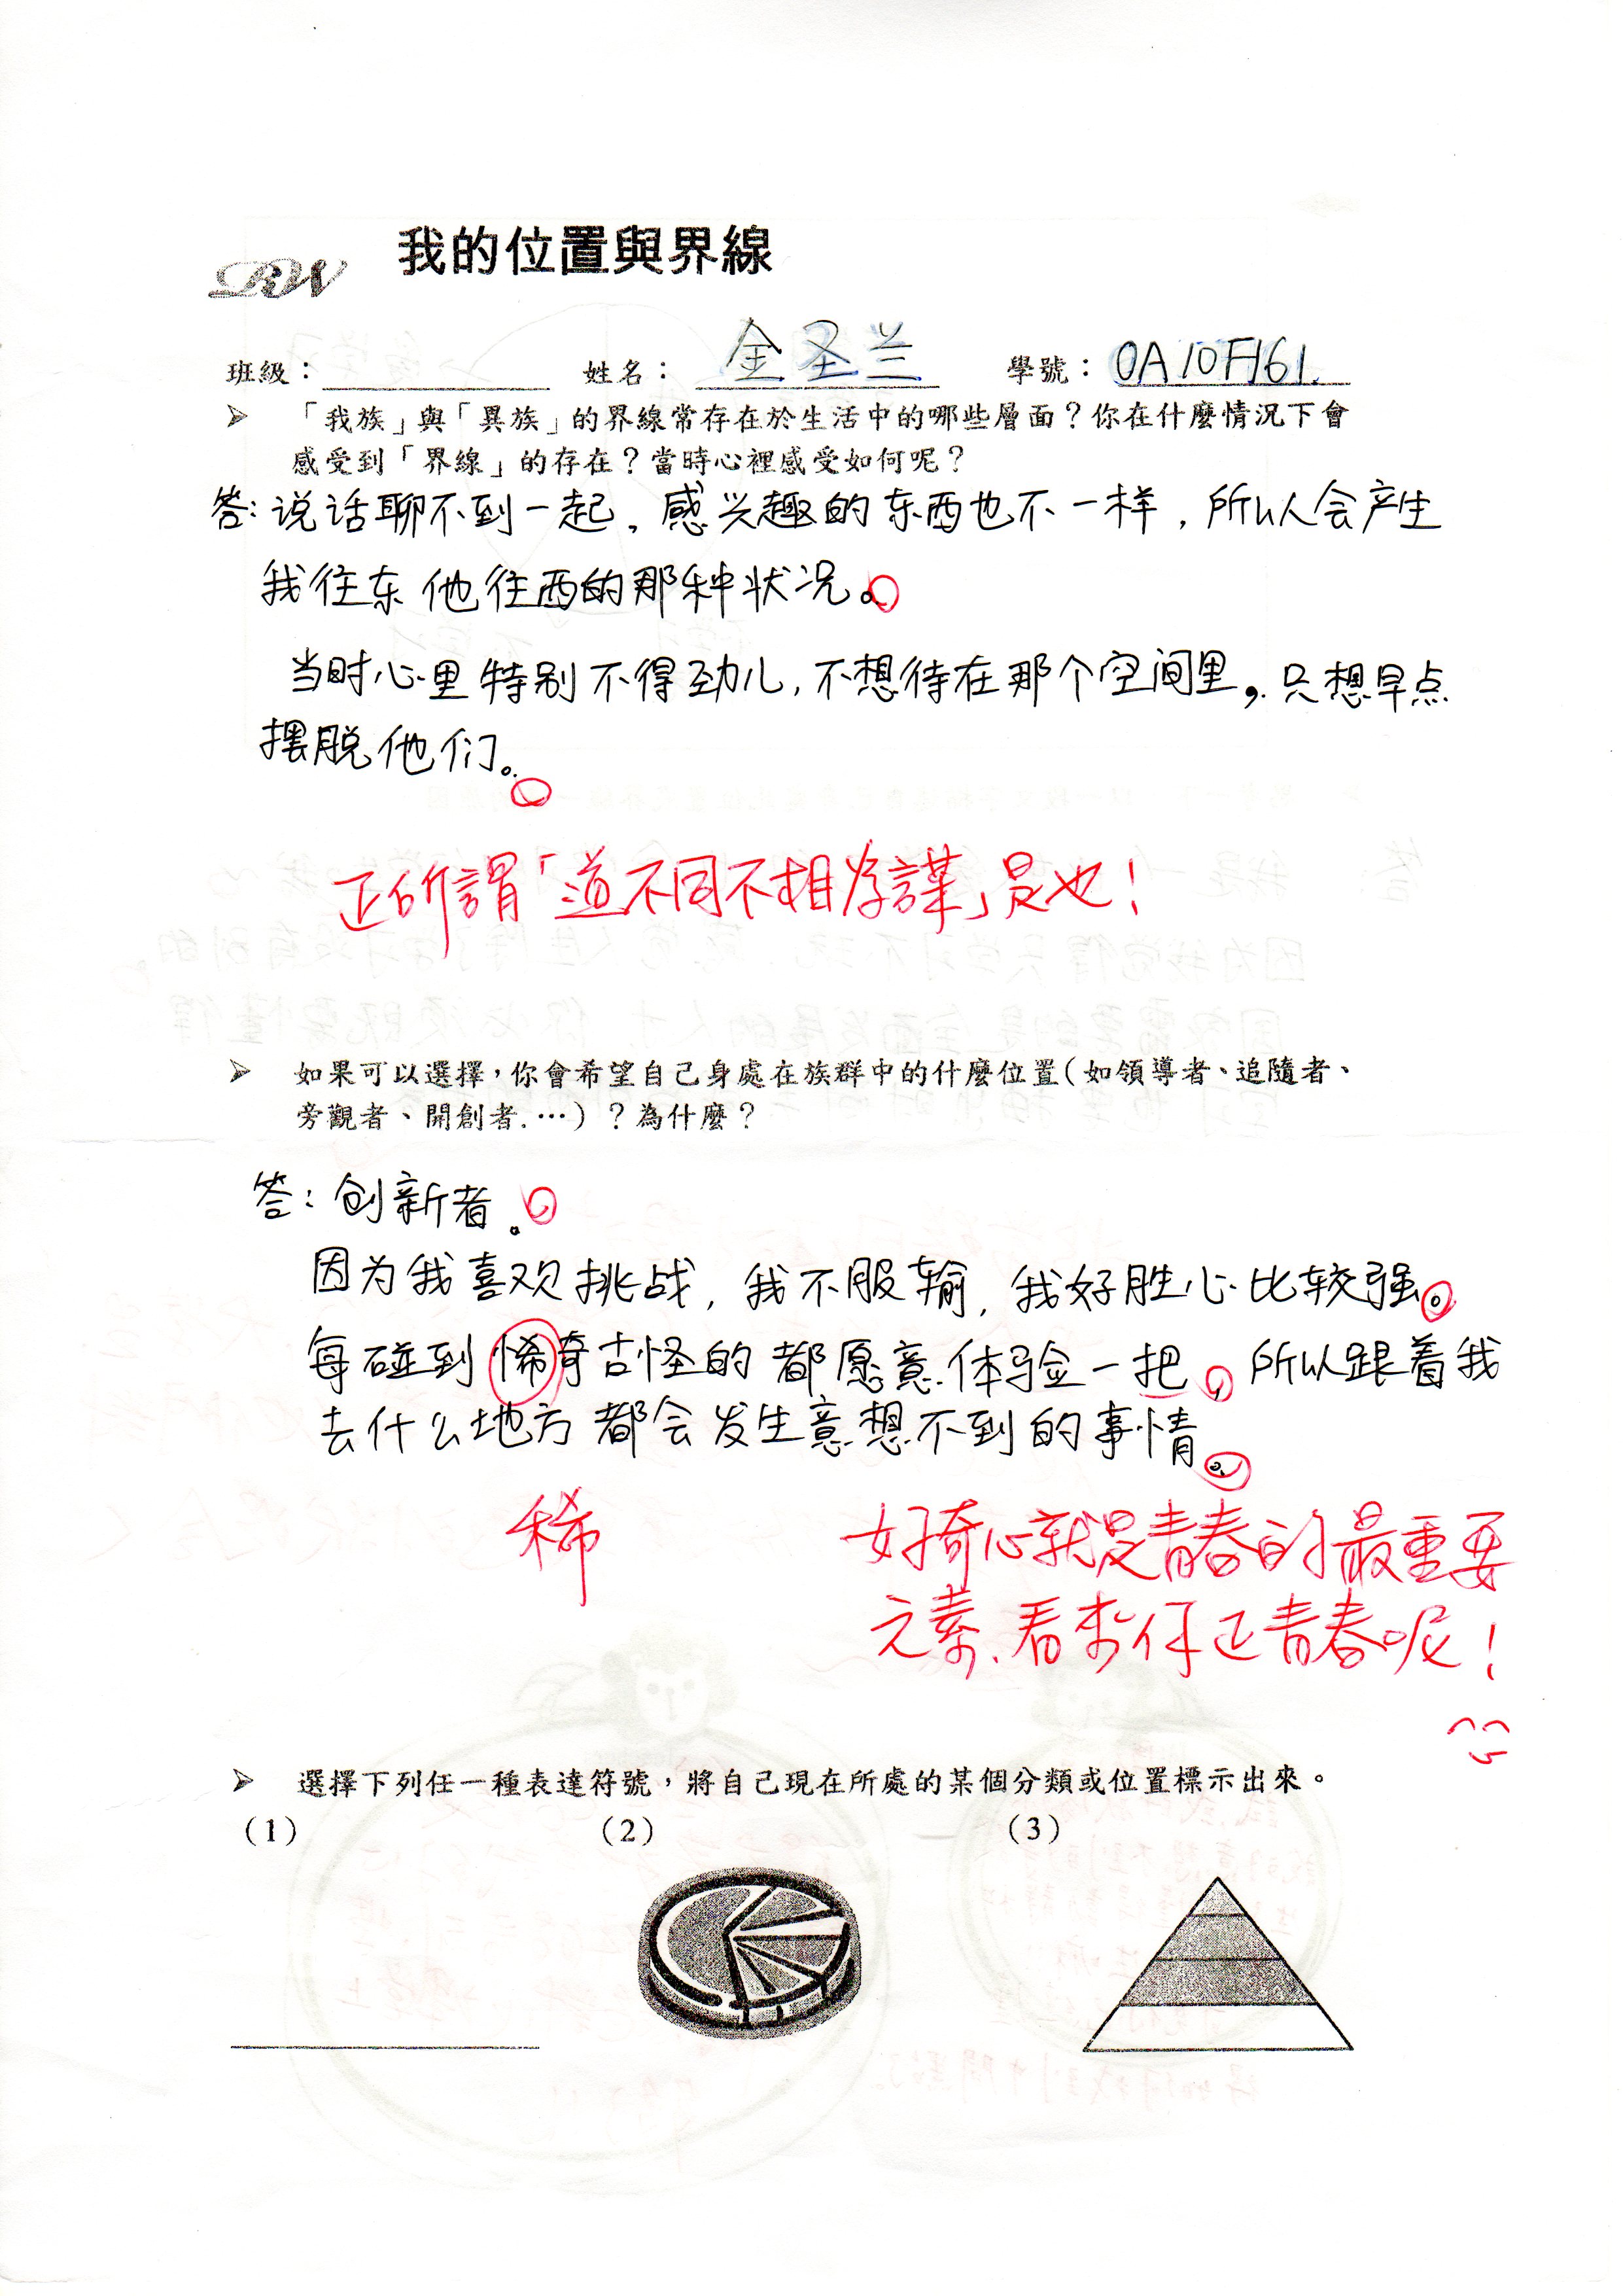 我的位置與界線
RW
班級： 姓名： 金圣兰 學號： 0A10F161.
「我族」與「異族」的界線常存在於生活中的哪些層面？你在什麼情況下會
感受到「界線」的存在？當時心裡感受如何呢？
答：说话聊不到一起，感兴趣的东西也不一样，所以人会产生
我往东他往西的那种状况。
当时心里特别不得劲儿，不想待在那个空间里，只想早点
摆脱他们。
正所謂「道不同不相為謀」是也！
如果可以選擇，你會希望自己身處在族群中的什麼位置（如領導者、追隨者、
旁觀者、開創者.…）？為什麼？
答：创新者。
因为我喜欢挑战，我不服输，我好胜心比较强。
每碰到悕奇古怪的都愿意体验一把，所以跟着我
去什么地方都会发生意想不到的事情。
稀
好奇心就是青春的最重要
元素，看來你正青春呢！
選擇下列任一種表達符號，將自己現在所處的某個分類或位置標示出來。
(1) (2) (3)